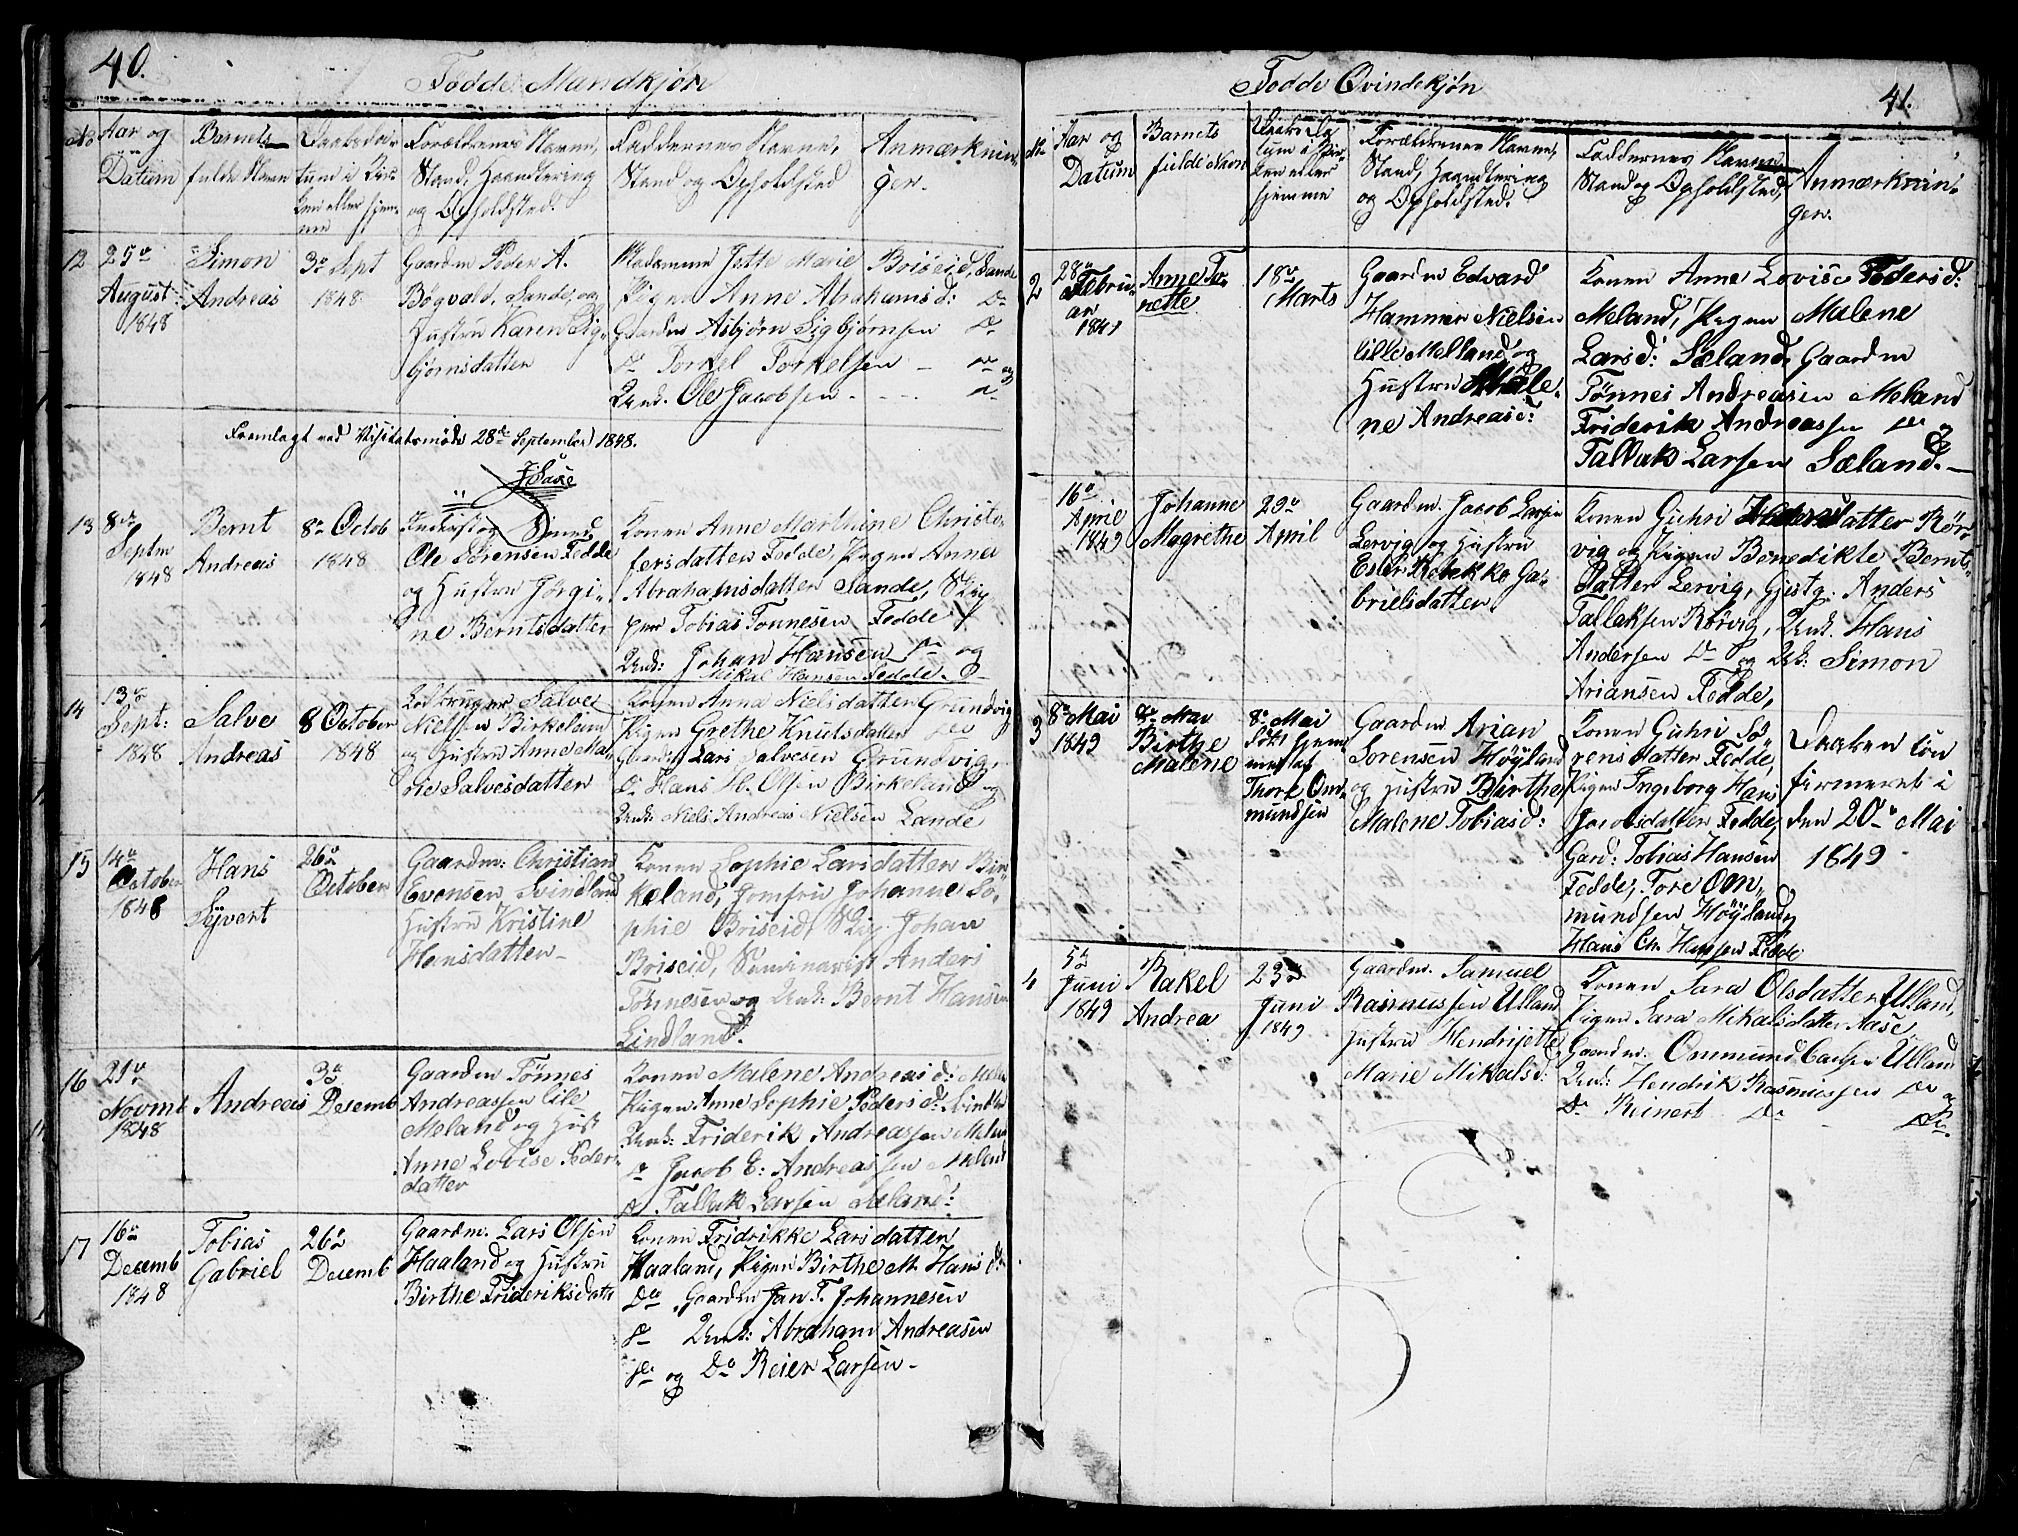 40.
Fødde Mandkjøn
No
Aar og
Datum
Barnets
fulde Navn
Daabsda-
tum i Kir-
ken eller hjem-
me
Forældrenes Navne,
Stand, Haandtering
og Opholdsted.
Faddernes Navne,
Stand og Opholdsted
Anmærknin-
ger.
12
25de
August
1848
Simon
Andreas
3de Sept
1848
Gaardm Peder A.
Bøgvald, Sande, og
Hustru Karen Sig-
bjørnsdatter
Madamme Jette Marie Briseid, Sande
Pigen Anne Abrahamsd: Do
Gaardm Asbjørn Sigbjørnsen Do
Do Torkel Torkelsen - Do og
Unk. Ole Jacobsen - - - Do
Fremlagt ved Visitatsmøde 28de September 1848.
13
8de
Septm
1848
Bernt
Andreas
8de Octob
1848
Inderst og
Ole Sørensen Fedde
og Hustru Jørgi-
ne Berntsdatter
Konen Anne Marthine Christo-
fersdatter Fedde, Pigen Anne
Abrahamsdatter Sande, Skip
per Tobias Tønnesen Fedde
Unk: Johan Hansen Do og
Mikal Hansen Fedde.
14
13de
Sept:
1848
Salve
Andreas
8 October
1848
Salve
Nielsen Birkeland
og Hustru Anne Ma-
rie Salvesdatter
Konen Anna Nielsdatter Grundvig
Pigen Grethe Knutsdatter Do
Gaard: Lars Salvesen Grundvig,
Do Hans H. Olsen Birkeland og
Unk: Niels Andreas Nielsen Lande
15
14de
October
1848
Hans
Syvert
26de
October
Gaardm: Christian
Evensen Svindland
Hustru Kristine
Hansdatter
Konen Sophie Larsdatter Bir-
keland, Jomfru Johanne So-
phie Briseid, Skip. Johan
Briseid, Seminarist Anders
Tønnesen og Unk: Bernt Hansen
Lindland.
16
21de
Novmt
1848
Andreas
3de
Desemb
Gaardm Tønnes
Andreassen lile
Meland og Hust
Anne Lovise Peders-
datter
Konen Malene Andreasd: Mela
Pigen Anne Sophie Pedersdt Svindla
Unk: Friderik Andreassen Mela
Do Jacob E: Andreassen Meland
Do Tallak Larsen Sæland:
17
16de
Decemb
1848
Tobias
Gabriel
26de
Decemb
Gaardm. Lars Olsen
Haaland og Hustru
Birthe Frideriksdatte
Konen Fridrikke Larsdatter
Haaland, Pigen Birthe M. Hansd:
Do, Gaardm Jan T. Johannesen
Do Unk: Abraham Andreasen
Do og Do Reier Larsen -
41.
Fødde Qvindekjøn
No
Aar og
Datum
Barnets
fulde Navn
Daabsda
tum i Kir-
ken eller
hjemme
Forældrenes Navne,
Stand, Haandtering
og Opholdsted.
Faddernes Navne
Stand og Opholdsted,
Anmærknin-
ger.
2
28de
Febru-
ar
1849
Anne To-
nette
18de
Marts
Gaardm Edvard
Hammer Nielsen
lille Melland og
Hustru Male-
ne Andreasd:
Konen Anne Lovise Pedersd:
Meland, Pigen Malene
Larsd: Sæland, Gaardm
Tønnes Andreasen Meland
Friderik Andreassen Do og
Tallak Larsen Sæland.
16de
April
1849
Johanne
Magrethe
29de
April
Gaardm. Jacob Larsen
Lervig og Hustru
Ester Rebekka Ga-
brielsdatter
Konen Guhri Pedersdatter Rør-
vig og Pigen Benedikte Bernts-
datter Lervig, Gjestg. Anders
Tallaksen Rørvig, Unk. Hans
Andersen Do og Uk: Simon
Ariansen Fedde,
3
8de Mai
1849
8de Mai
Birthe
Malene
8de Mai
døbt hjem-
me af
Thore Om-
mundsen
Gaardm Arian
Sørensen Høyland
og Hustru Birthe
Malene Tobiasd:
Konen Guhri Sø-
rensdatter Fedde,
Pigen Ingeborg Hans
Jacobsdatter Fedde,
Gard: Tobias Hansen
Fedde, Tore Om-
mundsen Høyland,
Hans Ch. Hansen Fedde
Daaben kon
firmeret i
den 20de Mai
1849
4
5te
Juni
1849
Rakel
Andrea
23de
Juni
1849
Gaardm. Samuel
Rasmussen Ulland
Hustru Hendrijette
Marie Mikalsd:
Konen Sara Olsdatter Ulland,
Pigen Sara Mikalsdatter Aase
Gaardm. Ommund Ulland
Unk: Hendrik Rasmussen Do og
Do Reinert Do - Do.